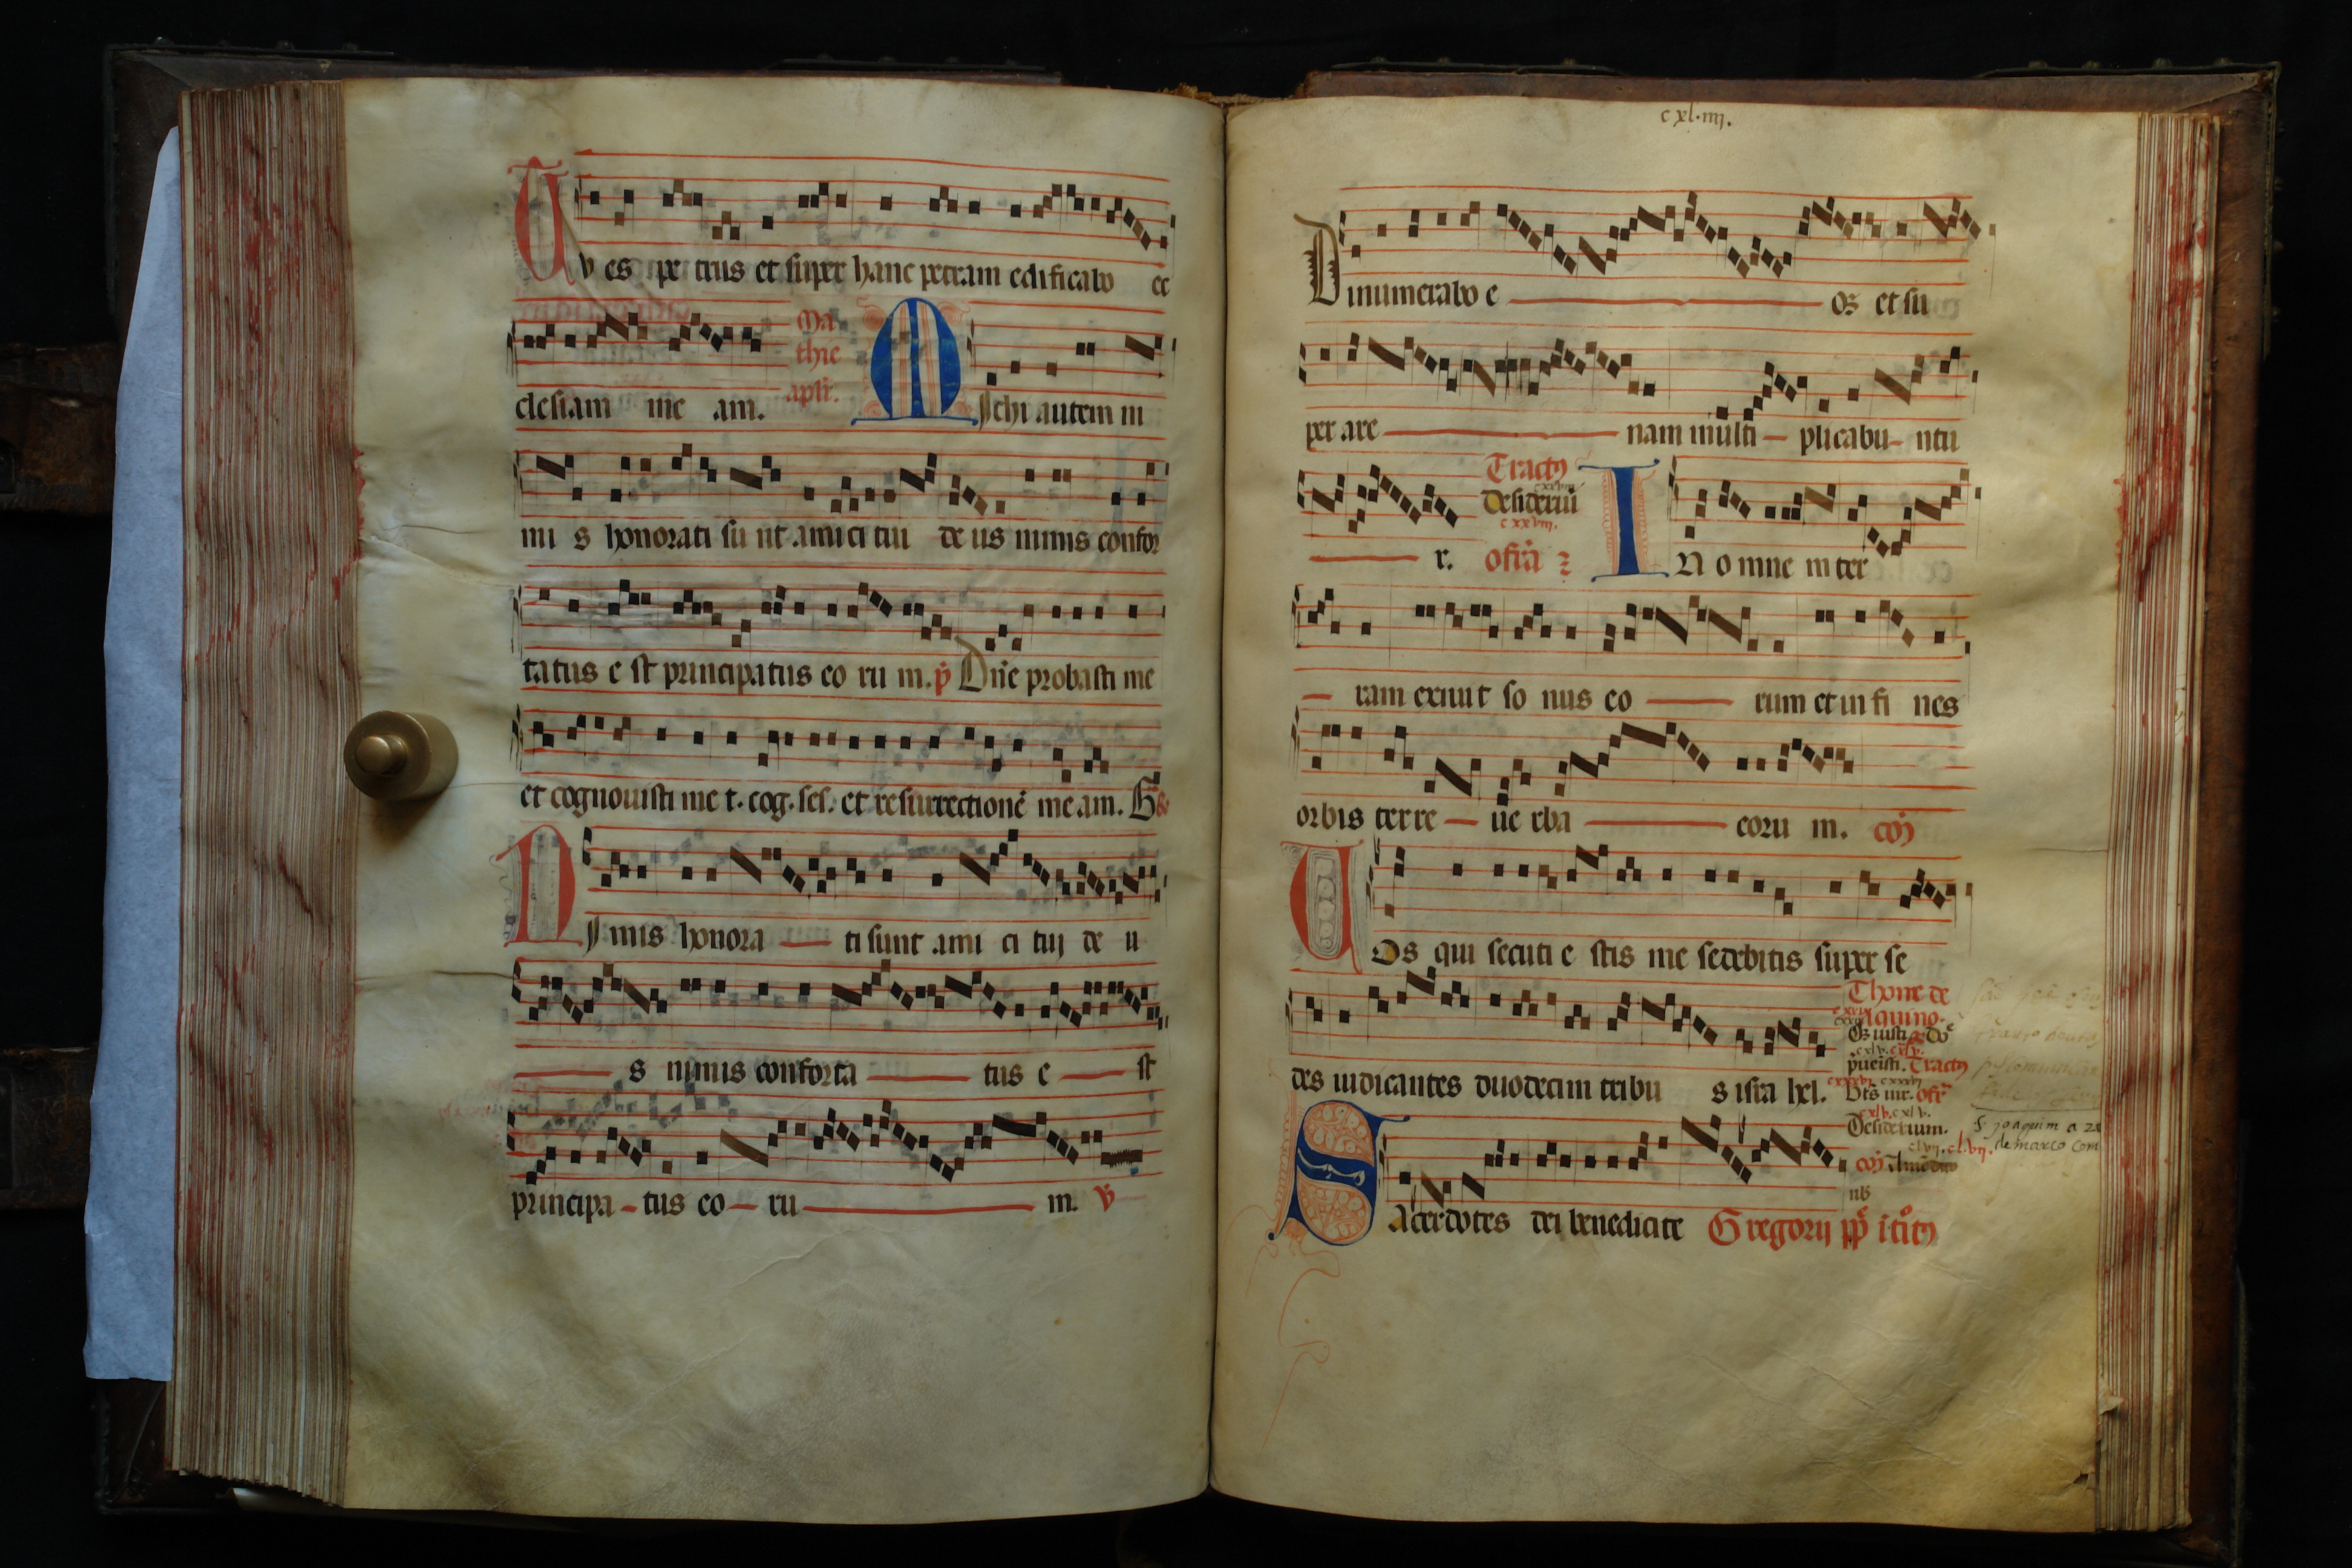 Tv es pe trus et super hanc petram edificabo ec
clesiam me am.
Ma
thie
apli.
Michi autem ni
mi s honorati su nt amici tui de us nimis confor
tatus e st principatus eo ru m. p̄ Dn̄e probasti me
et cognouisti me t. cog. ses. et resurrectionē meam. G̃
Nimis honora ti sunt ami ci tuj de u
s nimis conforta tus e st
principa tus eo ru m. v̄
cxl.iiij.
Dinumerabo e oꝝ et su
per are nam multi plicabu ntu
r.
Tractꝰ
Desideriū
cxxviij.
ofr̄a
In omne m ter
ram exiuit so nus eo rum et in fi nes
orbis terre ue rba eoru m. cōꝰ
Uos qui secuti e stis me sedebitis super se
des iudicantes duodecim tribu s isra hel.
Thome de
Aquino.
Oꝝ iusti
Tractꝰ
Bt̄s uir. ofr̄
cxlv. cxlv.
Desiderium.
clvij. clvij.
S joaquim a 20
de marco com
Sacerdotes dei benedicite Gregorij pp̄ ītꝰ